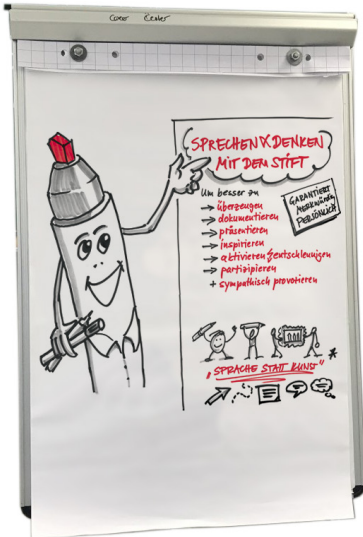 SPRECHEN & DENKEN
MIT DEM STIFT
Um besser zu
→ überzeugen
→ dokumentieren
→ präsentieren
→ inspirieren
→ aktivieren & entschleunigen
→ partizipieren
+ sympathisch provozieren
GARANTIERT
MERKWÜRDIG
PERSÖNLICH
"SPRACHE STATT KUNST"